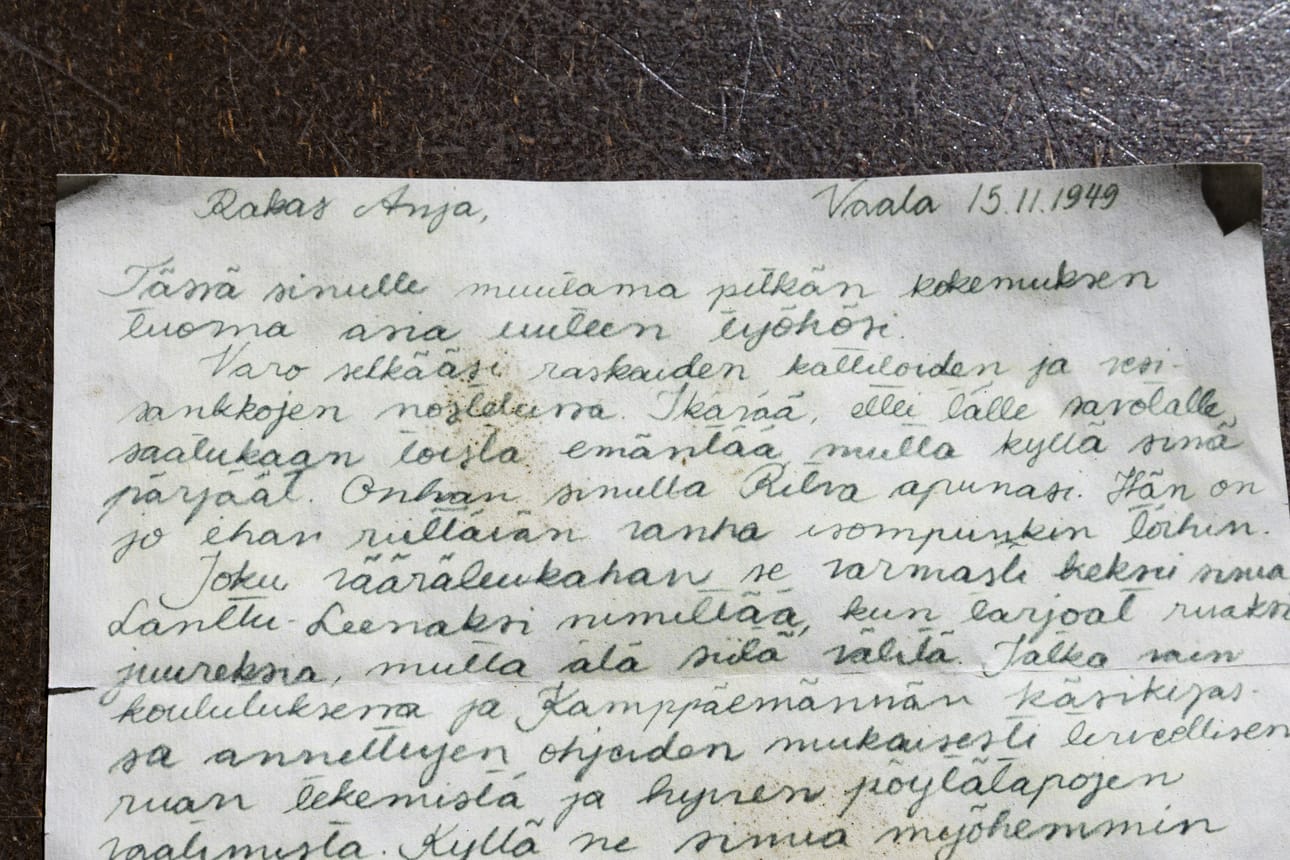 Rakas Anja,
Vaala 15.11.1949
Tässä sinulle muutama pitkän kokemuksen
tuoma asia uuteen työhösi.
Varo selkääsi raskaiden kattiloiden ja vesi-
sankkojen nostelussa. Ikävää, ettei tälle savotalle
saatukaan toista emäntää, mutta kyllä sinä
pärjäät. Onhan sinulla Ritva apunasi. Hän on
jo ihan riittävän vanha isompiinkin töihin.
Joku vääräleukahan se varmasti keksii sinua
Lanttu-Leenaksi nimittää, kun tarjoat ruaksi
juureksia, mutta älä siitä välitä. Jatka vain
koululuksessa ja Kämppäemännän käsikirjas-
sa annettujen ohjeiden mukaisesti terveellisen
ruan tekemistä ja hyvien pöytätapojen
vaalimista. Kyllä ne sinua myöhemmin